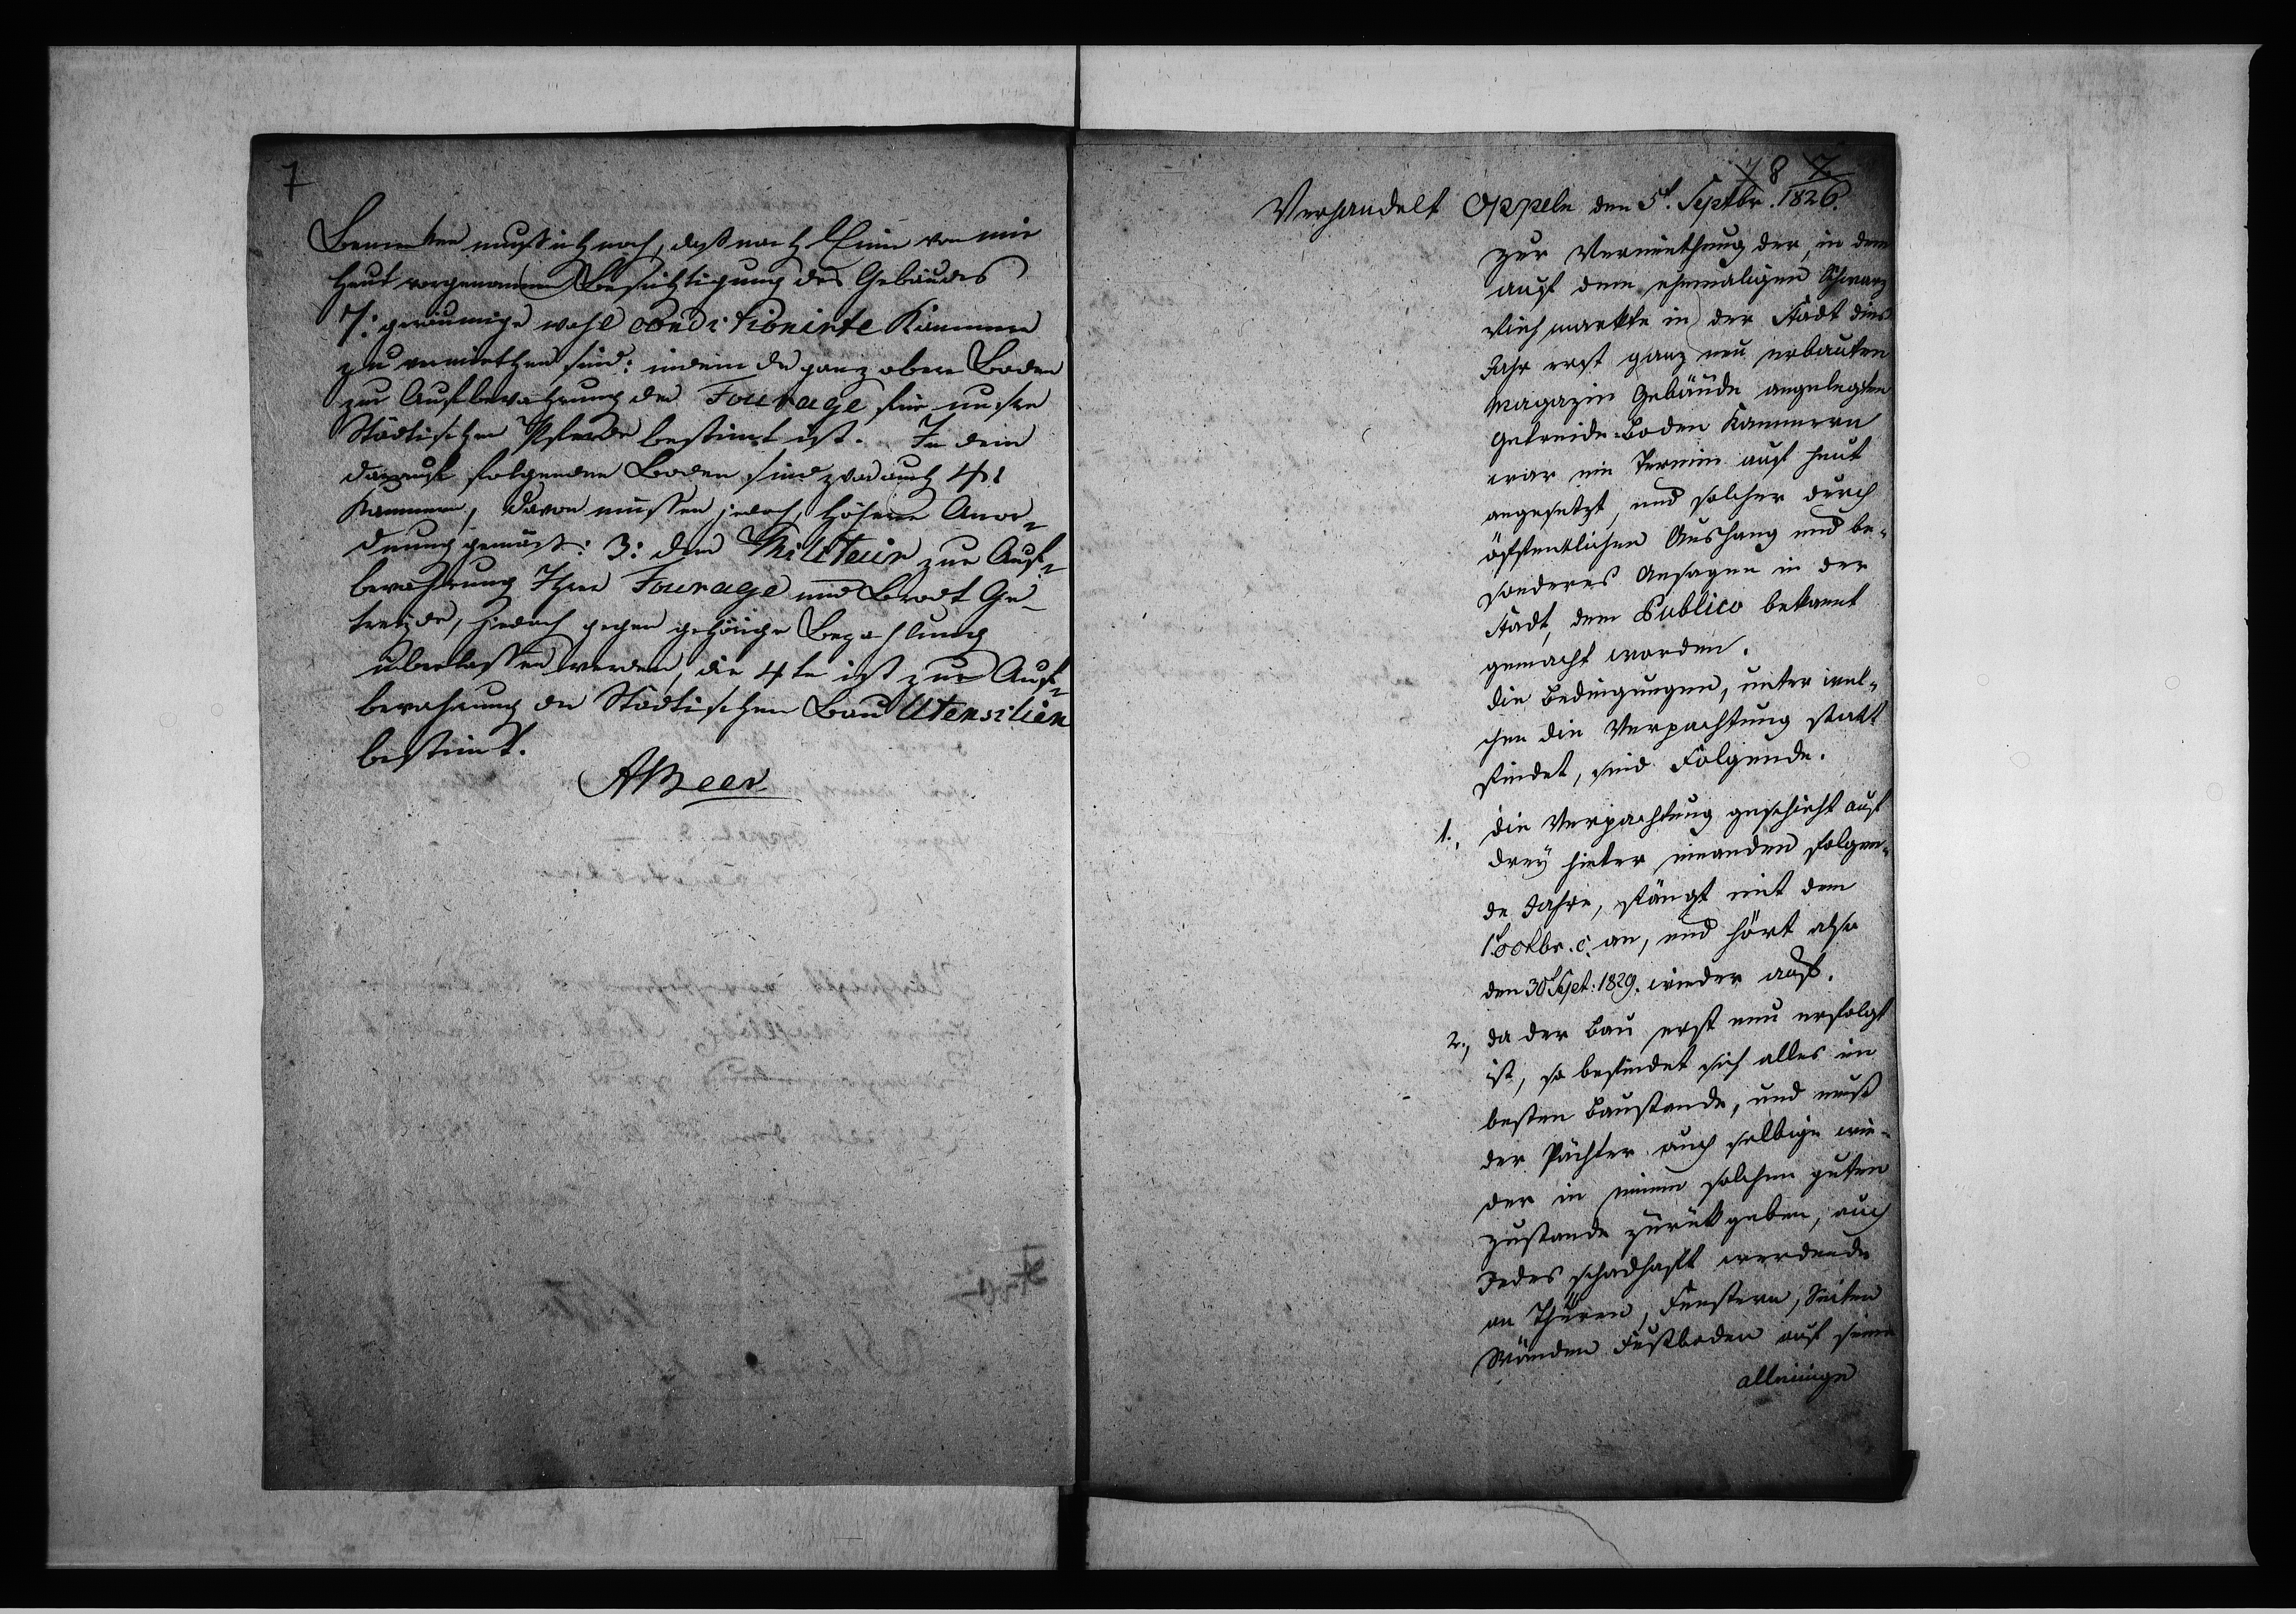 7
Bemerken muß ich noch, daß nach Einer von mir
heut vorgenommenen Besichtigung des Gebäudes
7: geräumige wohl conditionirte Kammern
zu vermiethen sind: indem der ganz obere Boden
zur Aufbewahrung der Fourage für unsre
Städtischen Pferde bestimt ist. In dem
darauf folgenden Boden sind zwar auch 4:
Kammern, davon müssen jedoch, höherer Anor¬
dnung gemäß: 3: dem Militair zur Auf¬
bewahrung Ihrer Fourage und Brodt Ge¬
treyde, jedoch gegen gehörige Bezahlung
überlassen werden, die 4te ist zur Auf¬
bewahrung der Städtischen Bau Utensilien
bestimt.
ABeer
8
Verhandelt Oppeln den 5t. Septbr. 1826.
zur Vermiethung der, in dem
auf dem ehemaligen Schwarz
Viehmarkte in der Stadt dies
Jahr erst ganz neu erbauten
Magazin Gebäude angelegten
Getreide-Boden Kammern
war ein Termin auf heut
angesetzt, und solcher durch
öffentlichen Aushang und be¬
sonderes Ansagen in der
Stadt, dem Publico bekannt
gemacht worden.
die Bedingungen, unter wel¬
chen die Verpachtung statt
findet, sind Folgende.
1., die Verpachtung geschieht auf
drey hinter einander folgen¬
de Jahre, fängt mit dem
1t Octbr. c. an, und hört also
den 30t Sept: 1829. wieder auf.
2., da der Bau erst neu erfolgt
ist, so befindet sich alles im
besten Baustande, und muß
der Pächter auch selbige wie¬
der in einem solchen guten
Zustande zurükgeben, auch
Jedes schadhaft werdende
an Thüren, Fenstern, Seiten
Wänden Fußboden auf seine
alleinige